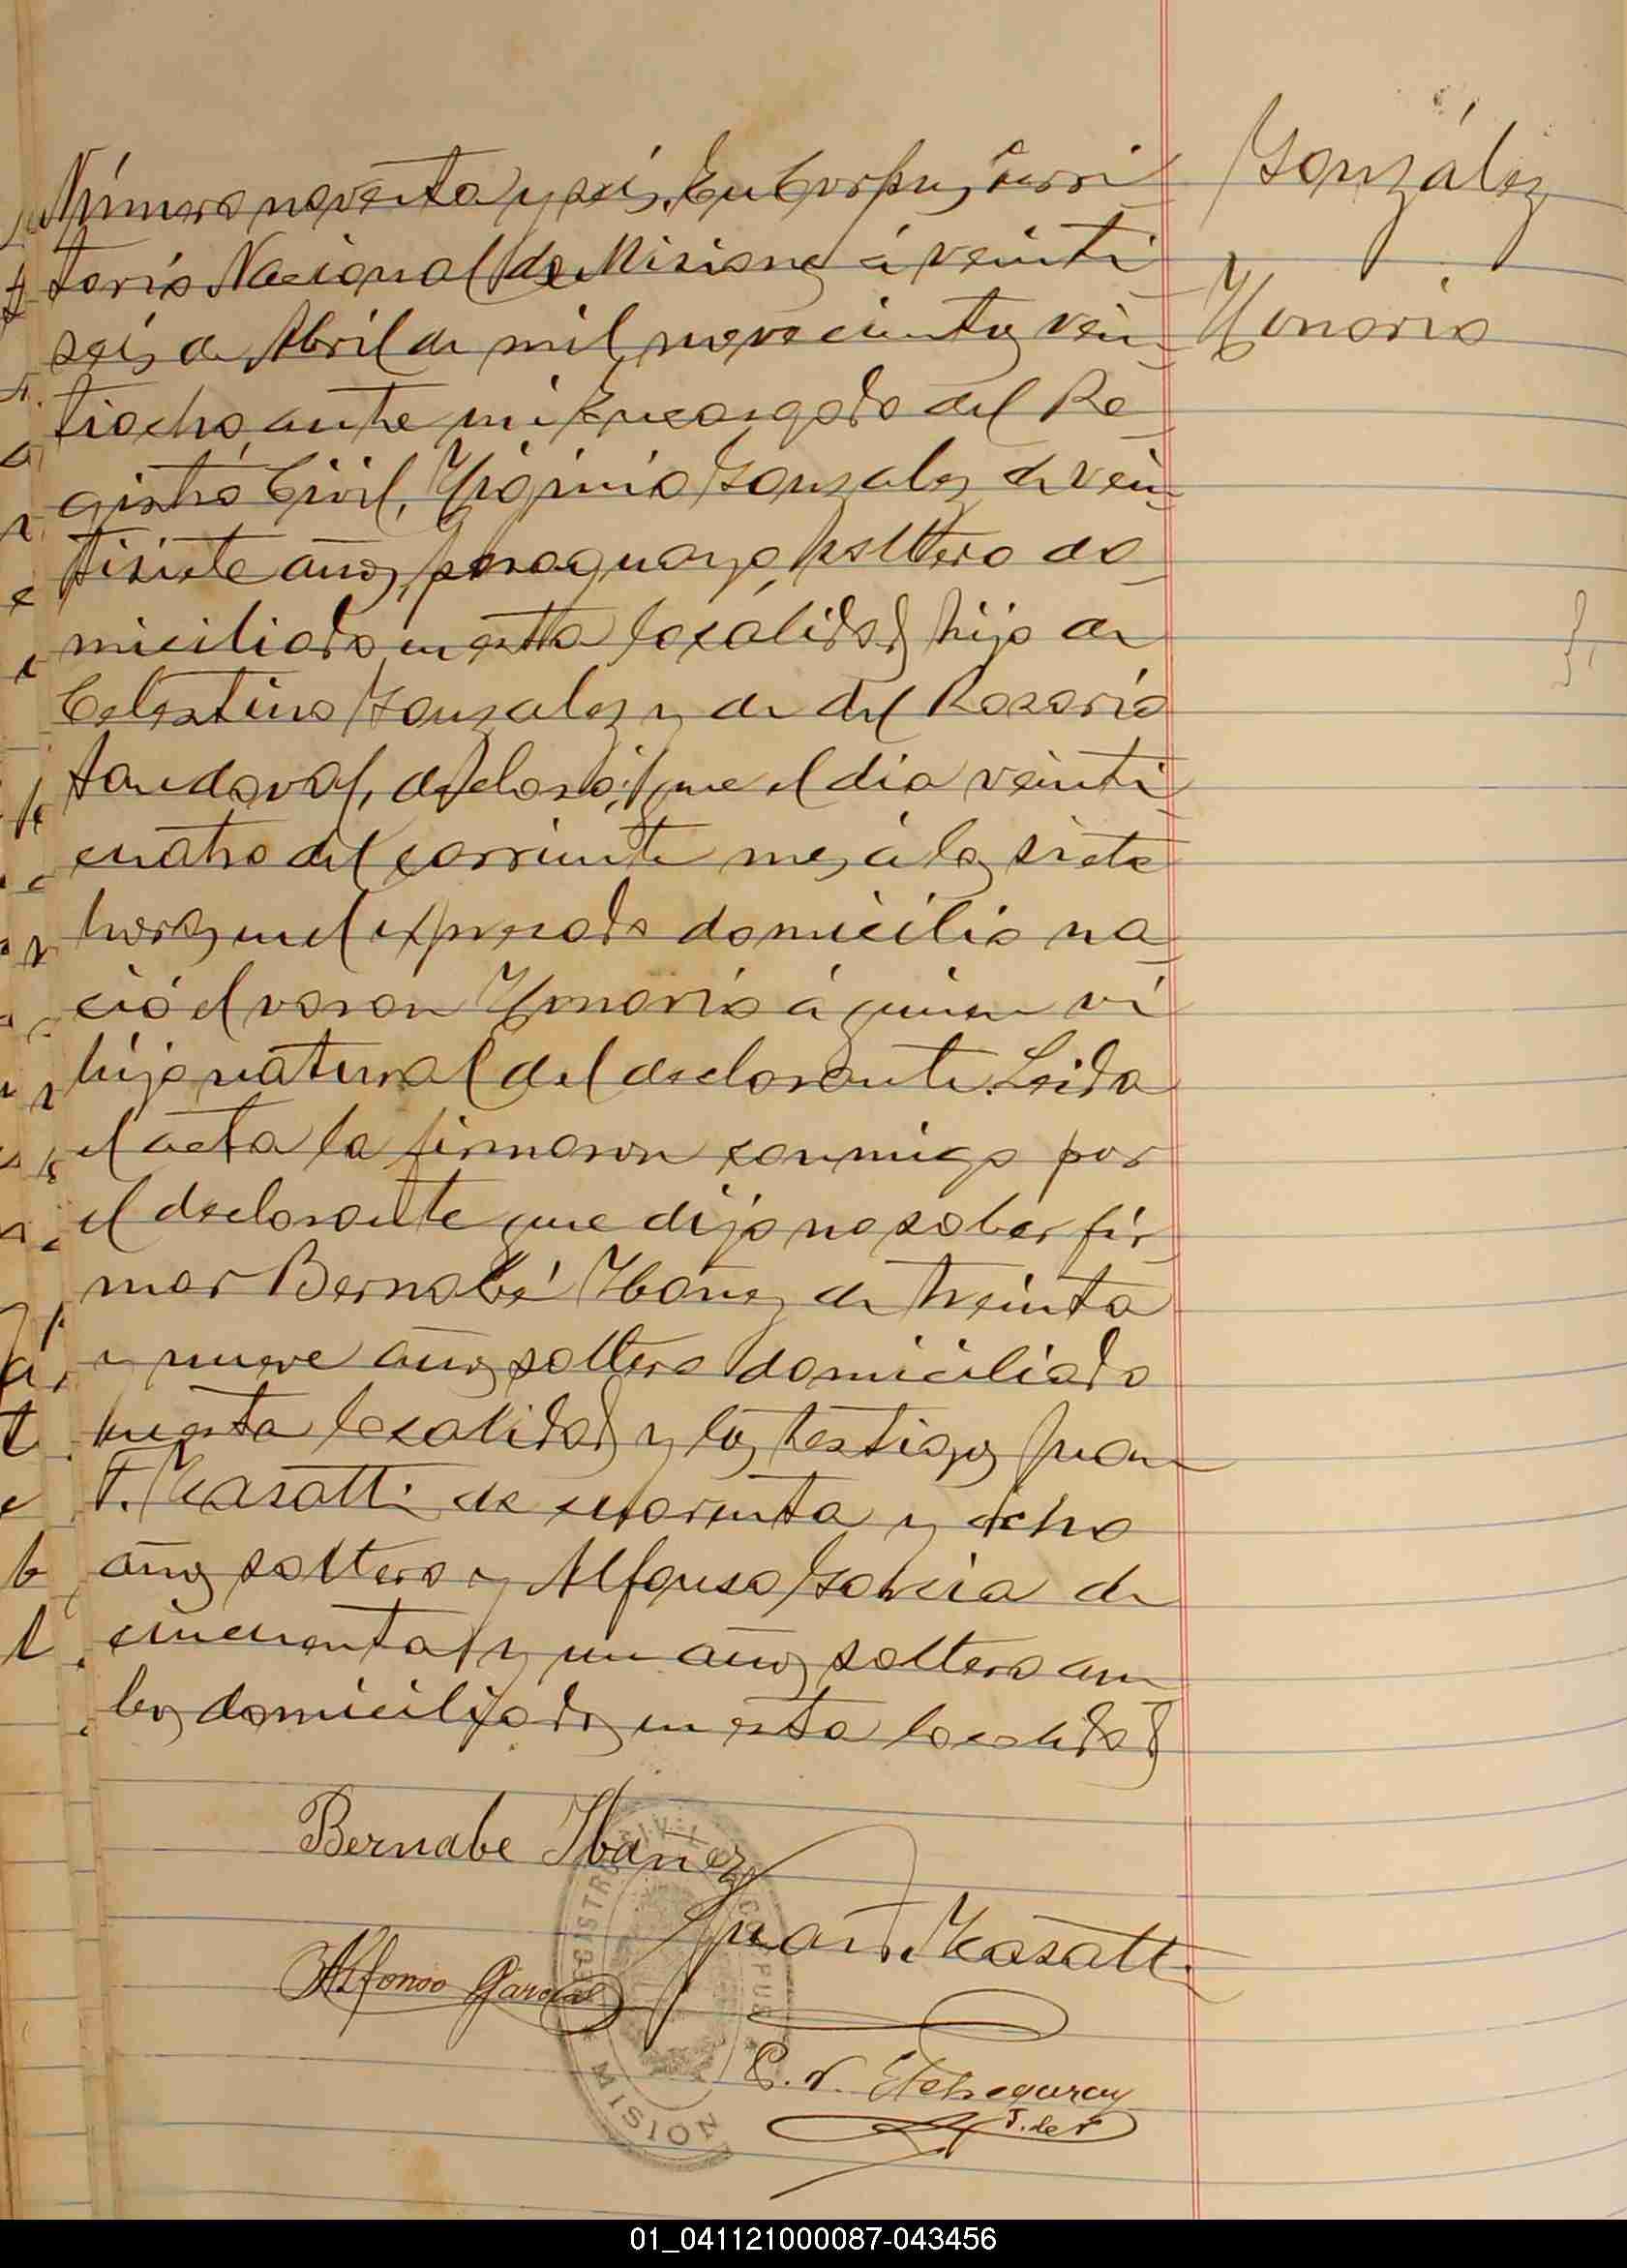 González
Honorio
Número noventa y seis. En Corpus, terri
torio Nacional de Misiones á veinti
seis de Abril de mil novecientos vein
tiocho, ante mi Encargado del Re
gistro Civil, Higinio Gonzalez de vein
tisiete años, paraguayo, soltero do
miciliado en esta localidad hijo de
Celestino Gonzalez y de del Rosario
Sandoval, declaró: que el dia veinti
cuatro del corriente mes á las siete
horas en el expresado domicilio na
ció el varon Honorio á quien ví
hijo natural del declarante. Leida
el acta la firmaron conmigo por
el declarante que dijo no saber fir
mar Bernabé Ibañez de treinta
y nueve años soltero domiciliado
en esta localidad y los testigos Juan
F. Kasatti de cuarenta y ocho
años soltero y Alfonso Garcia de
cincuenta y un años soltero am
bos domiciliados en esta localidad
Bernabe Ibañez
Juan F. Kasatti
Alfonso Garcia
E. N. Etchegaray
J. de P
REGISTRO CIVIL CORPUS
MISIONES
01_041121000087-043456